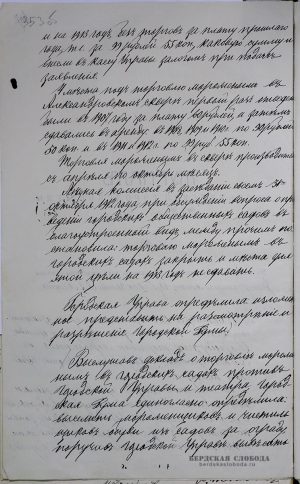 и на 1913 годъ безъ торговъ за плату прошлаго
года, т.е. за 99 рублей 55 коп., каковую сумму и
внесъ въ кассу Управы залогомъ при подачѣ
заявленія.
Мѣста подъ торговлю мороженымъ въ
Александровскомъ скверѣ первый разъ отданы
были въ 1907 году за плату рублей, а затѣмъ
сдавались въ аренду въ 1908, 1909 и 1910 г. по 90 рублей
50 коп. и въ 1911 и 1912 г. по 99 руб. 55 коп.
Торговля мороженымъ въ скверѣ производится
съ апрѣля по октябрь мѣсяцъ.
комиссія въ засѣданіи своемъ 31
октября 1912 года, при обсужденіи вопроса о при-
веденіи городскихъ общественныхъ садовъ въ
благоустроенный видъ, между прочимъ по-
становила: торговлю мороженымъ въ
городскихъ садахъ закрыть и мѣста для
этой цѣли на 1913 годъ не сдавать.
Городская Управа опредѣлила: изложен-
ное представить на разсмотрѣніе и
разрѣшеніе Городской Думы.
Выслушавъ докладъ о торговлѣ мороже-
нымъ въ городскихъ садахъ противъ
Городской Управы и театра, Город-
ская Дума единогласно опредѣлила:
выселить мороженщиковъ и чистиль-
щиковъ обуви изъ садовъ за ограду,
поручивъ Городской Управѣ
БЕРДСКАЯ СЛОБОДА
berdskasloboda.ru